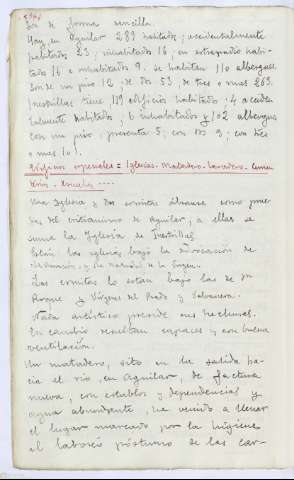 es de forma sencilla.
Hay en Aguilar 289 habitados; accidentalmente
habitados 23; inhabitados 16; en extraradio habi-
tado 16 e inhabitados 9. Se habitan 110 albergues
son de un piso 12; de dos 53; de tres o mas 263.
Inestrillas tiene 119 edificios habitado; 4 acciden
talmente habitado; 6 inhabitados y 102 albergues
con un piso, presenta 5; con dos 9; con tres
o mas 101.
Edificios especiales = Iglesias - Matadero - Lavadero - Cemen
terios - Escuelas ....
Una Iglesia y dos ermitas álzanse como prue
bas del cristianismo de Aguilar, a ellas se
suma la Iglesia de Inestrillas.
Están las iglesias bajo la advocación de
la Asunción y la Natividad de la Virgen.
Las ermitas lo están bajo las de Sn
Roque y Vírgenes del Prado y Valvanera.
Nada artístico prende en ellas.
En cambio resultan capaces y con buena
ventilación.
Un matadero, sito en la salida ha-
cia el río, en Aguilar, de factura
nueva, con establos y dependencias y
agua abundante, ha venido a llenar
el lugar marcado por la higiene
al laboreo póstumo de las car-